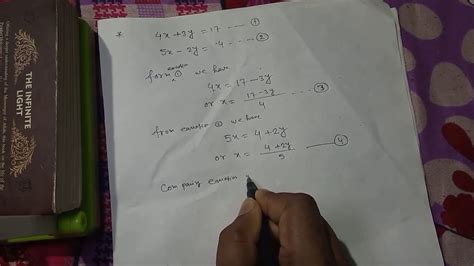 * 4x+3y = 17 ---- ①
5x - 2y = 4 --- ②
from equation ① we have
4x = 17-3y
or x = 17-3y / 4 ---- ③
from equation ② we have
5x = 4+2y
or x = 4+2y / 5 —— ④
Com paring equation
THE INFINITE
LIGHT